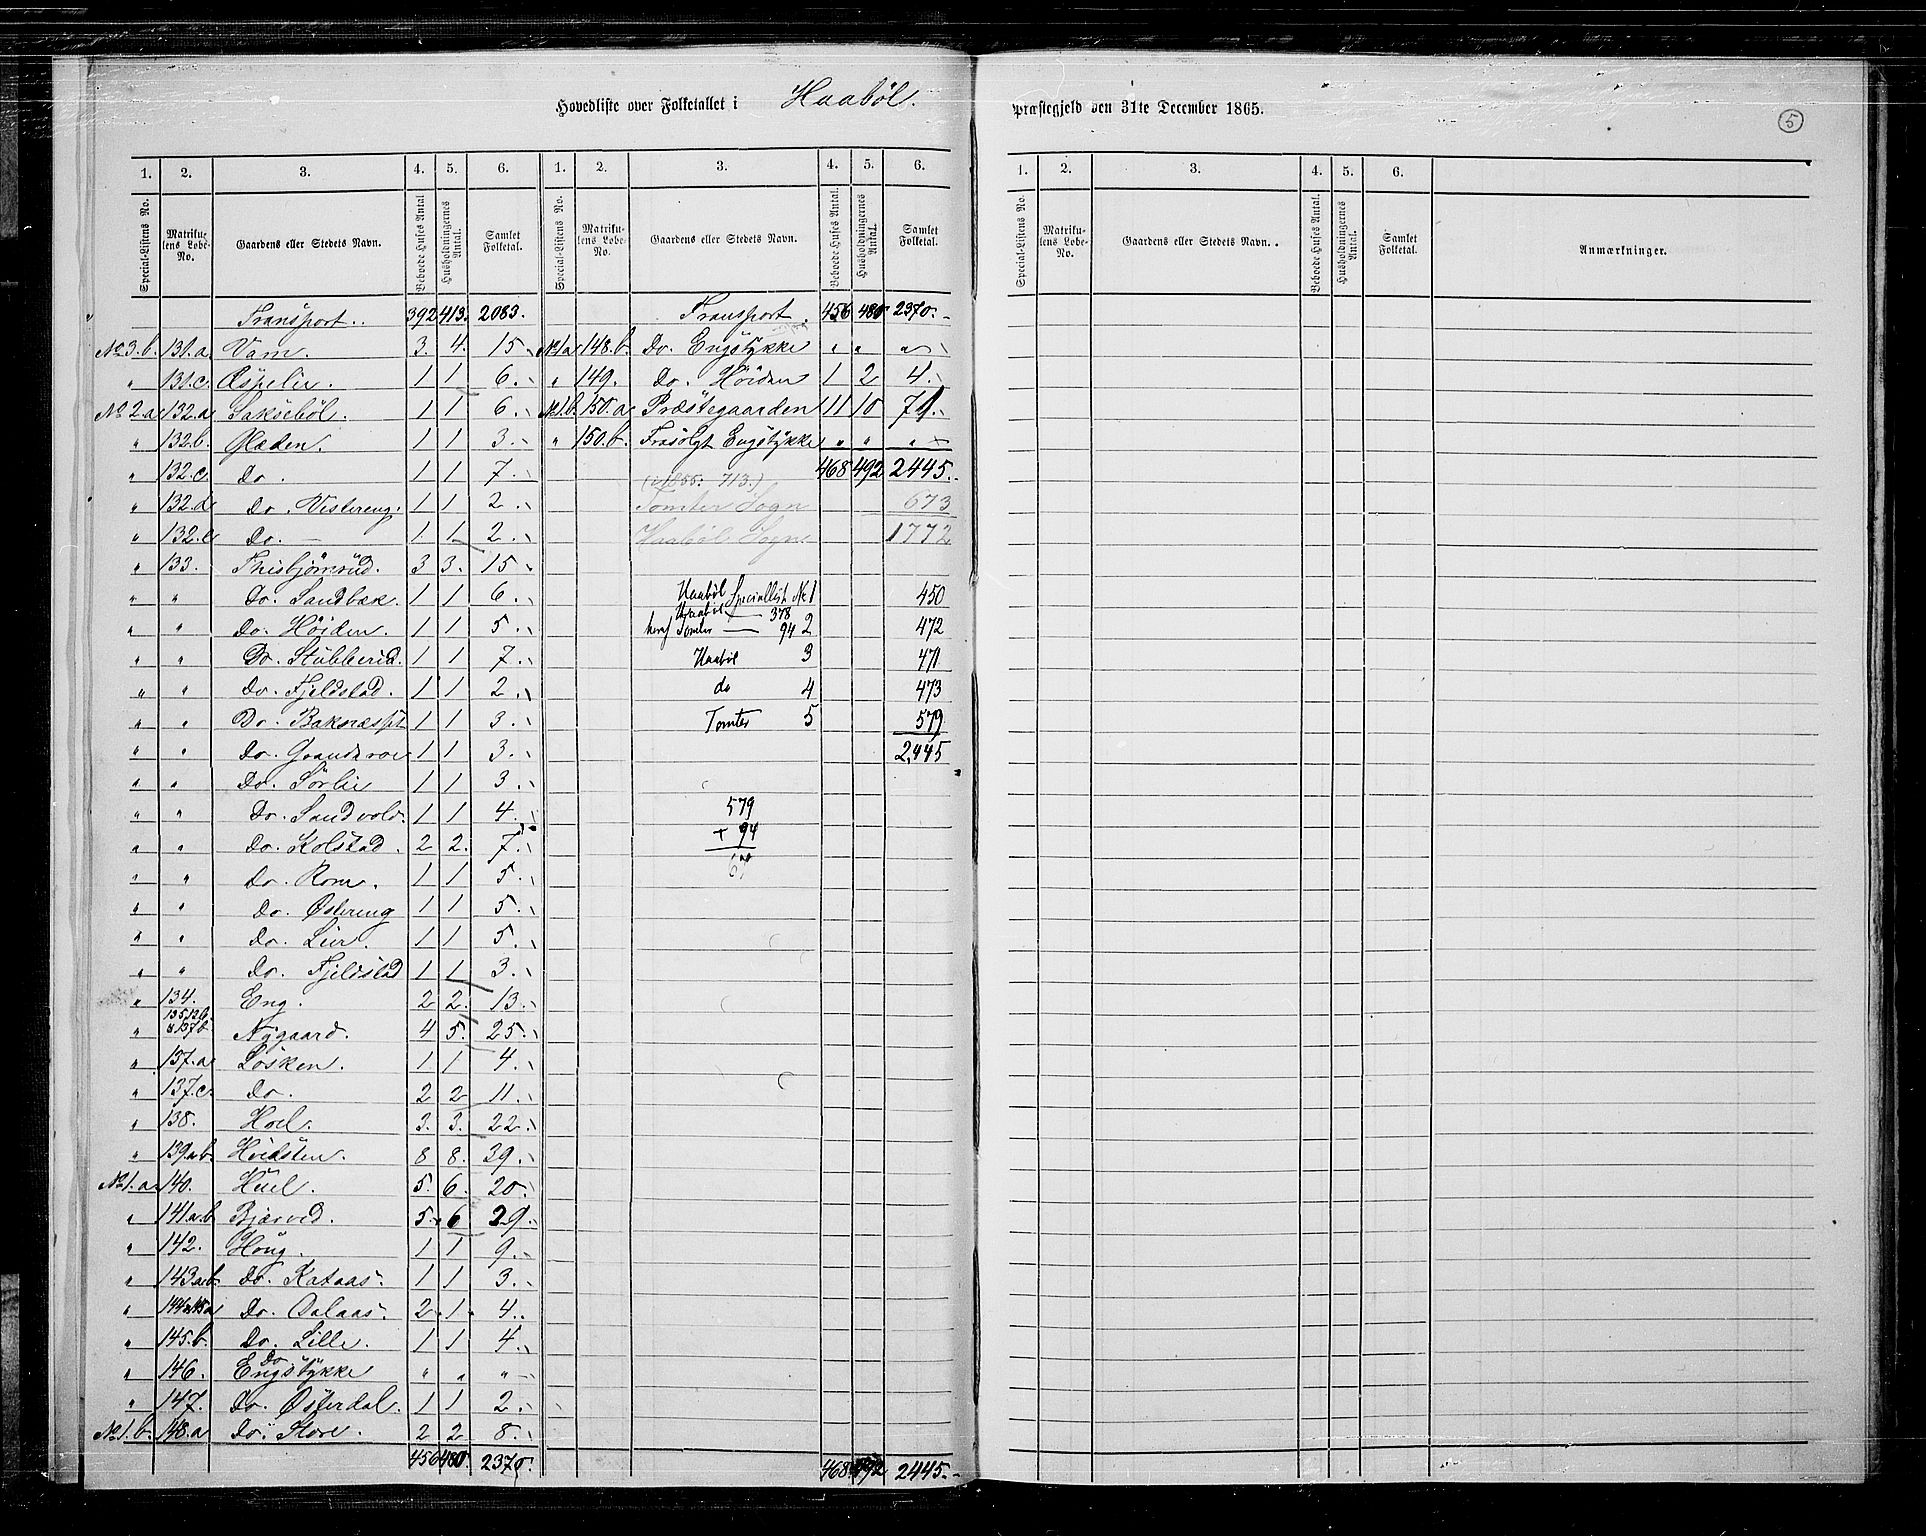 Hovedliste over Folketallet i Haabøl. Præstegjeld den 31te December 1865.
5
1. 2. 3. 4. 5. 6. 1. 2. 3. 4. 5. 6. 1. 2. 3. 4. 5. 6.
Special-Listens No. Matrikulens Løbe-No. Gaardens eller Stedets Navn. Beboede Huses Antal Husholdningernes Antal. Samlet Folketal. Special-Listens No. Matrikulens Løbe-No. Gaardens eller Stedets Navn. Beboede Huses Antal Husholdningernes Antal. Samlet Folketal. Special-Listens No. Matrikulens Løbe-No. Gaardens eller Stedets Navn. Beboede Huses Antal. Husholdningernes Antal. Samlet Folketal. Anmærkninger.
Transport.. 392 413. 2083.
No 3.b. 131.a Vam. 3. 4. 15.
" 131.c. Æspelir. 1 1 6.
No 2.a 132.a Saksebøl. 1 1 6.
" 132.b. Glæden. 1 1 3.
" 132.c. Do. 1 1 7.
" 132.d. Do. Vestereng. 1 1 2.
" 132.e Do. — 1 1 2.
" 133. Thisbjørnrud. 3 3. 15.
" " Do. Sandbæk. 1 1 6.
" " Do. Høiden. 1 1 5.
" " Do. Stubberud. 1 1 7.
" " Do. Fjeldstad. 1 1 2.
" " Do. 1 1 3.
" " Do. 1 1 3.
" " Do. Sørlie 1 1 3.
" " Do. Sandvold. 1 1 4.
" " Do. Kolstad. 2 2. 7.
" " Do. Rom. 1 1 5.
" " Do. Østereng 1 1 5.
" " Do. Lier. 1 1 5.
" " Do. Fjeldstad 1 1 3.
" 134. Eng. 2 2. 13.
" 135, 136. & 137b Nygaard. 4 5. 25.
" 137.a Løsken. 1 1 4.
" 137.c. Do. 2 2 11.
" 138. Hoel. 3. 3. 22.
" 139ab. Hvidsten. 8 8. 39.
No 1.a 140. Huel. 5. 6. 20.
" 141a.b Bjærved. 5. 6 29.
" 142. Houg. 1 1 9.
" 143ab. Do. Kataas. 1 1 3.
" 144 145a Do. Dalaas. 2 1. 4.
" 145.b. Do. Lille. 1 1 4.
" 146. Do. Engstykke " " "
" 147. Do. Østerdal. 1 1 2.
No 1.b. 148.a Do. Store. 2 2 8.
456 480. 2370.
Transport. 456 480 2370.
No 1a 148.b. Do. Engstykke " " "
" 149. Do. Høiden 1 2 4.
No 1.b. 150.a Præstegaarden 11 10 71.
" 150.b. Frasolgt Engstykke " " "
468 492 2445.
(i 1855: 713.)
Tomter Sogn 673
Haabøl Sogn 1772
Haabøl Speciallist No 1 450
Haabøl — 378
heraf Tomter — 94 2 472
Haabøl 3 471
do 4 473
Tomter 5 579
2,445
579
+ 94
67
468 492 2445.